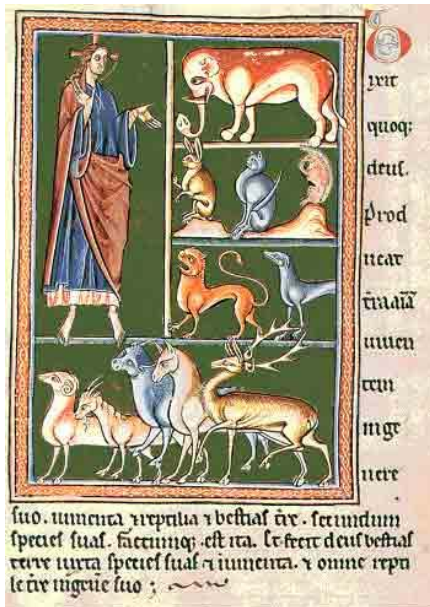 D
ixit
quoq:
deus.
Prod
ucat
t̄raaīā
uiuen
tem
inge
nere
suo. iumenta ⁊ reptilia ⁊ bestias t̄re. secundum
species suas. factumq; est ita. Et fecit deus bestias
terre iuxta species suas ⁊ iumenta. ⁊ omne repti
le t̄re in gene suo ;